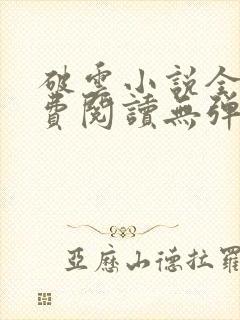 破雲小說全
費閱讀無彈
亞歷山德拉羅